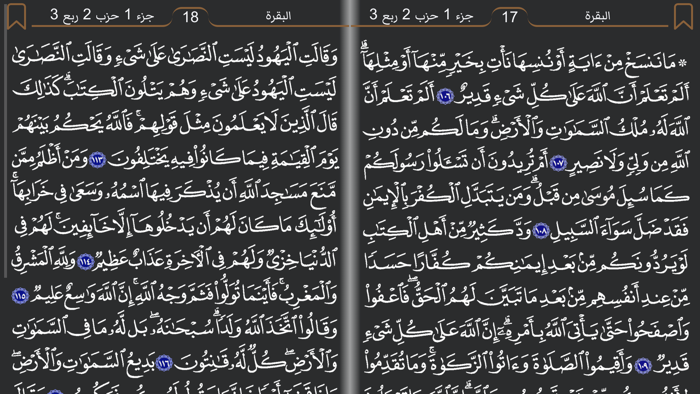 البقرة 17 جزء 1 حزب 2 ربع 3
۞ مَا نَنسَخْ مِنْ ءَايَةٍ أَوْ نُنسِهَا نَأْتِ بِخَيْرٍ مِّنْهَآ أَوْ مِثْلِهَآ ۗ
أَلَمْ تَعْلَمْ أَنَّ ٱللَّهَ عَلَىٰ كُلِّ شَىْءٍ قَدِيرٌ ١٠٦ أَلَمْ تَعْلَمْ أَنَّ
ٱللَّهَ لَهُۥ مُلْكُ ٱلسَّمَٰوَٰتِ وَٱلْأَرْضِ ۗ وَمَا لَكُم مِّن دُونِ
ٱللَّهِ مِن وَلِىٍّ وَلَا نَصِيرٍ ١٠٧ أَمْ تُرِيدُونَ أَن تَسْـَٔلُوا۟ رَسُولَكُمْ
كَمَا سُئِلَ مُوسَىٰ مِن قَبْلُ ۗ وَمَن يَتَبَدَّلِ ٱلْكُفْرَ بِٱلْإِيمَٰنِ
فَقَدْ ضَلَّ سَوَآءَ ٱلسَّبِيلِ ١٠٨ وَدَّ كَثِيرٌ مِّنْ أَهْلِ ٱلْكِتَٰبِ
لَوْ يَرُدُّونَكُم مِّنۢ بَعْدِ إِيمَٰنِكُمْ كُفَّارًا حَسَدًا
مِّنْ عِندِ أَنفُسِهِم مِّنۢ بَعْدِ مَا تَبَيَّنَ لَهُمُ ٱلْحَقُّ ۖ فَٱعْفُوا۟
وَٱصْفَحُوا۟ حَتَّىٰ يَأْتِىَ ٱللَّهُ بِأَمْرِهِۦٓ ۗ إِنَّ ٱللَّهَ عَلَىٰ كُلِّ شَىْءٍ
قَدِيرٌ ١٠٩ وَأَقِيمُوا۟ ٱلصَّلَوٰةَ وَءَاتُوا۟ ٱلزَّكَوٰةَ ۚ وَمَا تُقَدِّمُوا۟
البقرة 18 جزء 1 حزب 2 ربع 3
وَقَالَتِ ٱلْيَهُودُ لَيْسَتِ ٱلنَّصَٰرَىٰ عَلَىٰ شَىْءٍ وَقَالَتِ ٱلنَّصَٰرَىٰ
لَيْسَتِ ٱلْيَهُودُ عَلَىٰ شَىْءٍ وَهُمْ يَتْلُونَ ٱلْكِتَٰبَ ۗ كَذَٰلِكَ
قَالَ ٱلَّذِينَ لَا يَعْلَمُونَ مِثْلَ قَوْلِهِمْ ۚ فَٱللَّهُ يَحْكُمُ بَيْنَهُمْ
يَوْمَ ٱلْقِيَٰمَةِ فِيمَا كَانُوا۟ فِيهِ يَخْتَلِفُونَ ١١٣ وَمَنْ أَظْلَمُ مِمَّن
مَّنَعَ مَسَٰجِدَ ٱللَّهِ أَن يُذْكَرَ فِيهَا ٱسْمُهُۥ وَسَعَىٰ فِى خَرَابِهَآ ۚ
أُو۟لَٰٓئِكَ مَا كَانَ لَهُمْ أَن يَدْخُلُوهَآ إِلَّا خَآئِفِينَ ۚ لَهُمْ فِى
ٱلدُّنْيَا خِزْىٌ وَلَهُمْ فِى ٱلْـَٔاخِرَةِ عَذَابٌ عَظِيمٌ ١١٤ وَلِلَّهِ ٱلْمَشْرِقُ
وَٱلْمَغْرِبُ ۚ فَأَيْنَمَا تُوَلُّوا۟ فَثَمَّ وَجْهُ ٱللَّهِ ۚ إِنَّ ٱللَّهَ وَٰسِعٌ عَلِيمٌ ١١٥
وَقَالُوا۟ ٱتَّخَذَ ٱللَّهُ وَلَدًا ۗ سُبْحَٰنَهُۥ ۖ بَل لَّهُۥ مَا فِى ٱلسَّمَٰوَٰتِ
وَٱلْأَرْضِ ۖ كُلٌّ لَّهُۥ قَٰنِتُونَ ١١٦ بَدِيعُ ٱلسَّمَٰوَٰتِ وَٱلْأَرْضِ ۖ